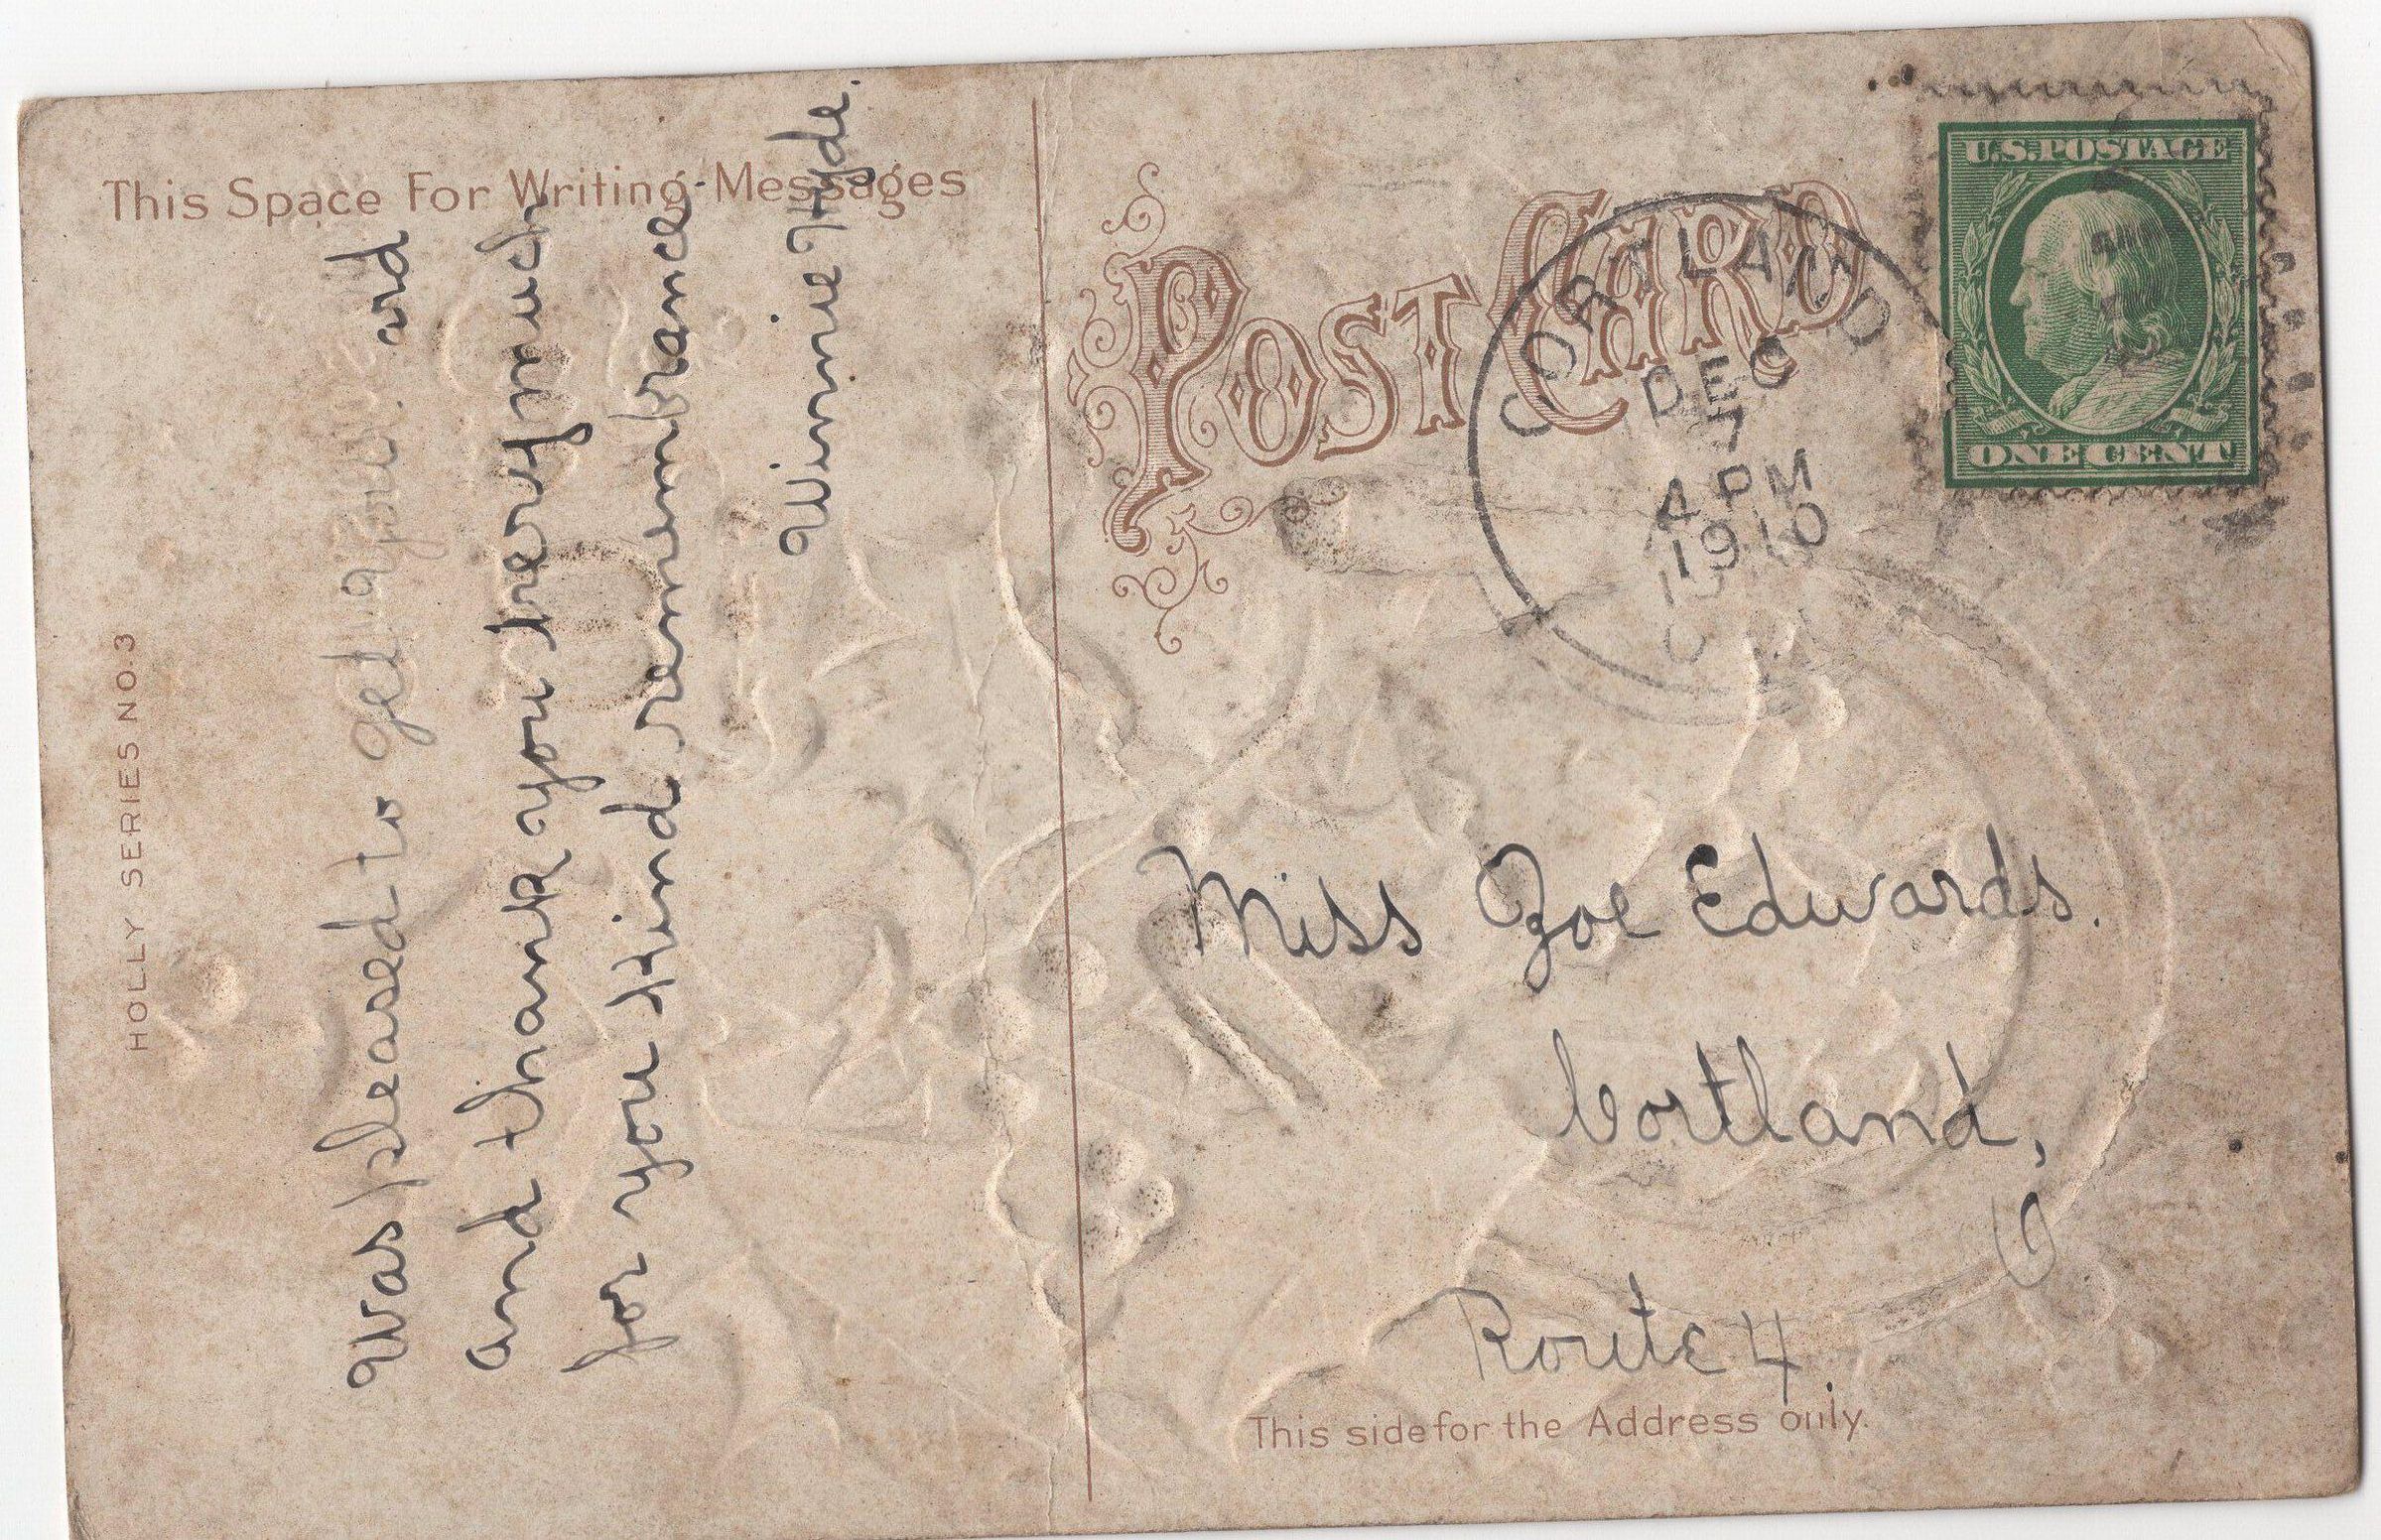 This Space For Writing Messages
HOLLY SERIES NO. 3
Was pleased to get your
and thank you very much
for you kind remembrance
Winnie Hyde.
POST CARD
CORTLAND
DEC
7
4 PM
1910
U.S. POSTAGE
ONE CENT
Miss Zoe Edwards.
Cortland,
O
Route 4.
This side for the Address only.